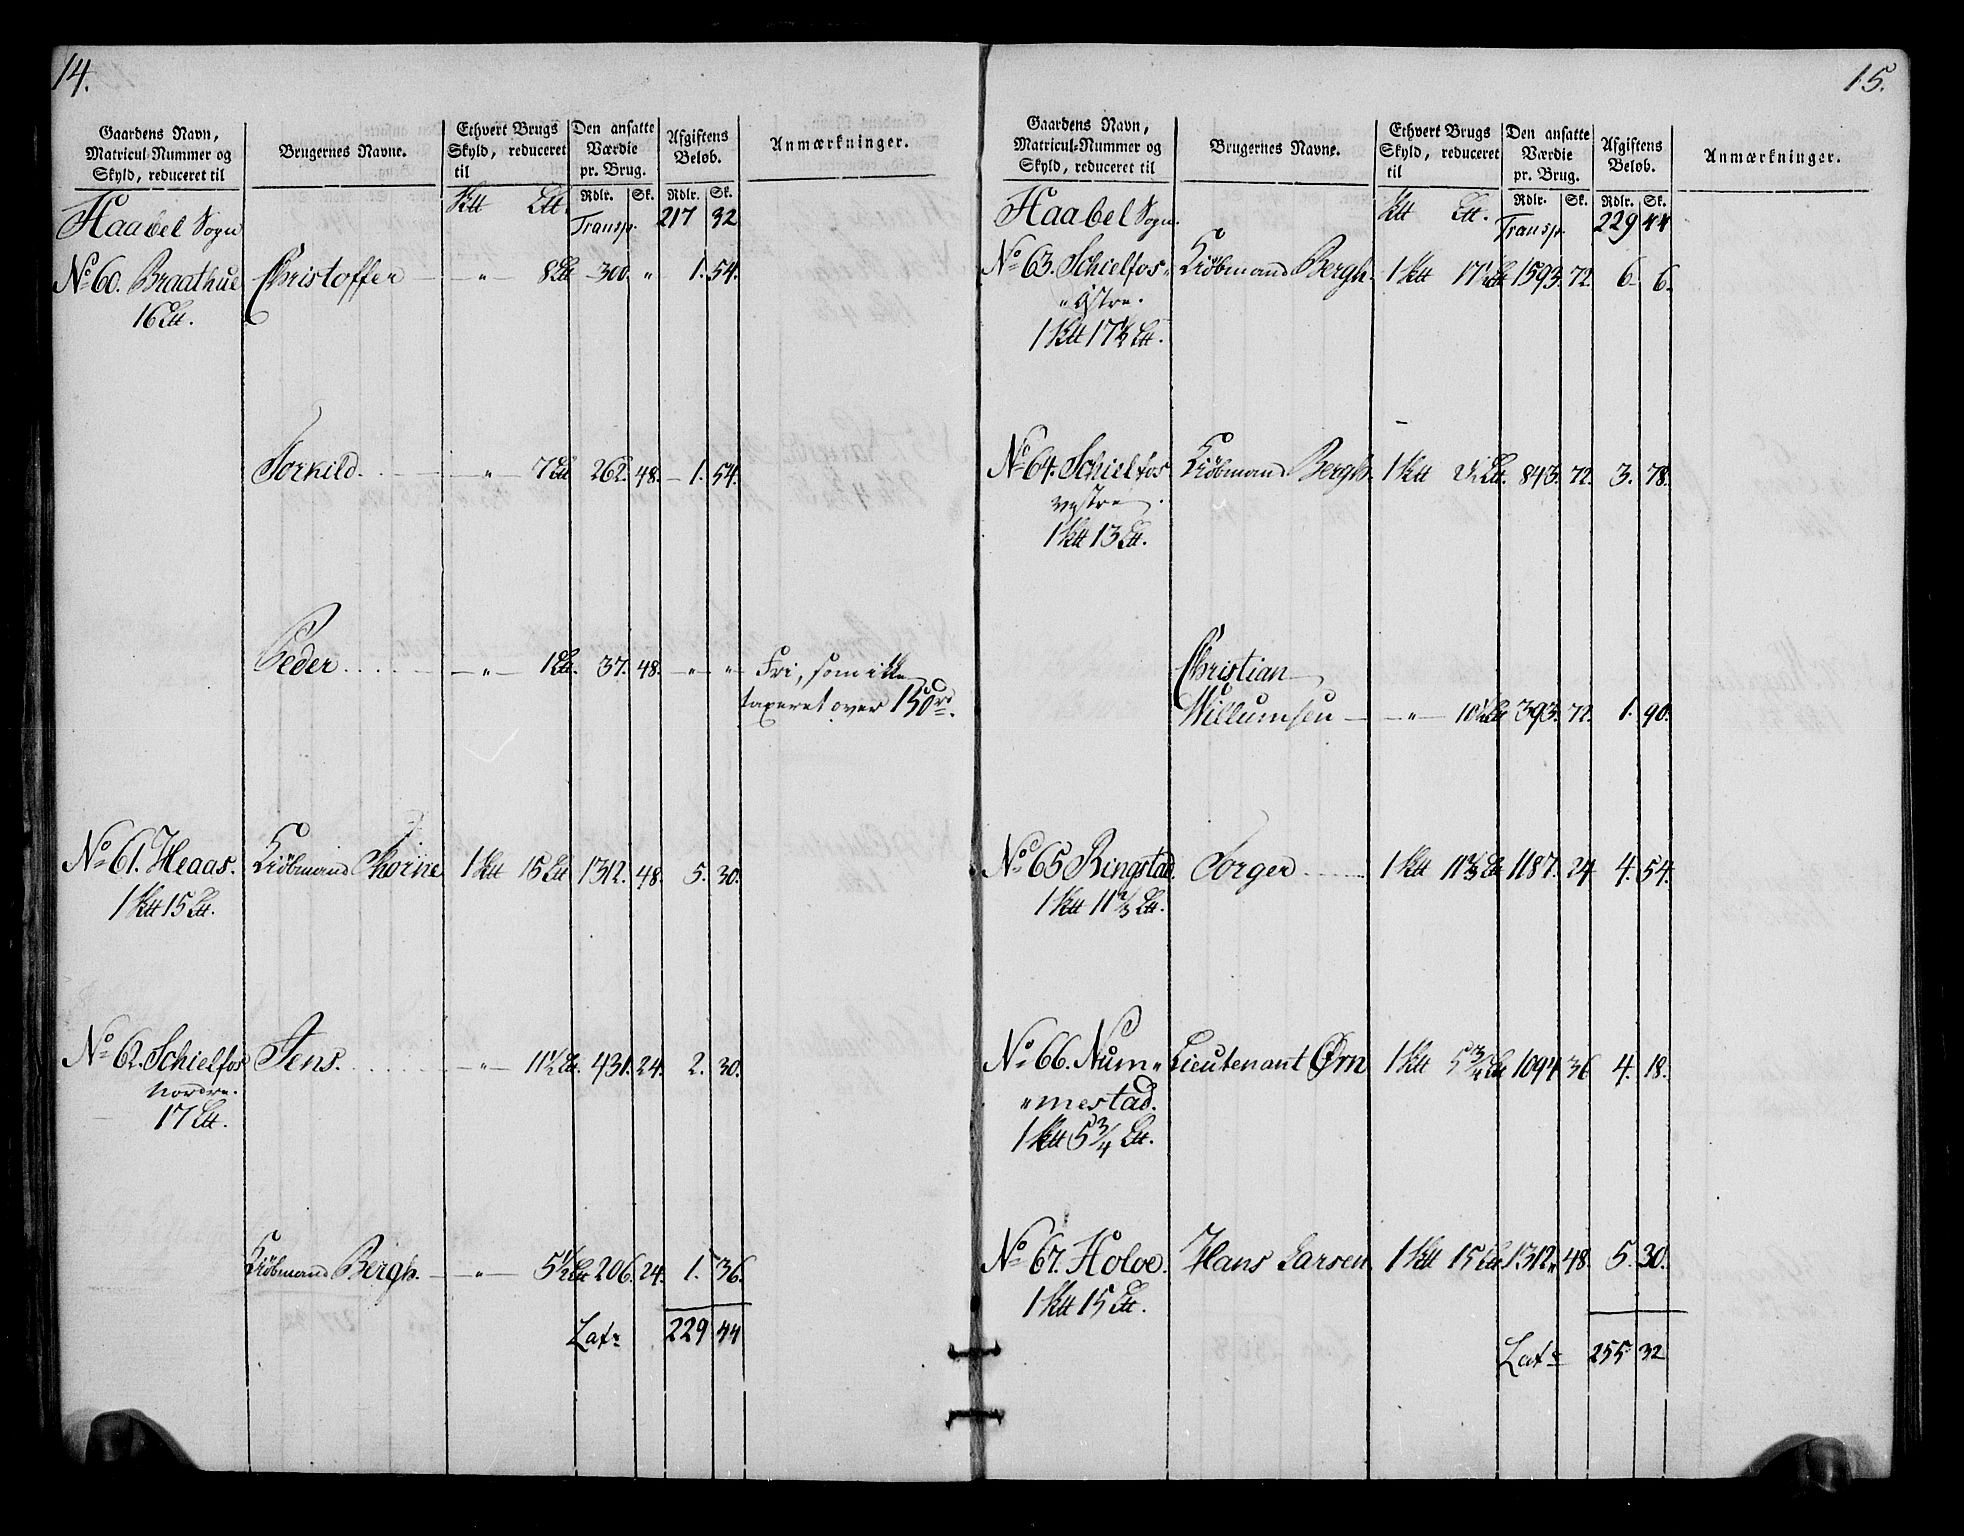 14.
Gaardens Navn, Matricul-Nummer og Skyld, reduceret til | Brugernes Navne. | Ethvert Brugs Skyld, reduceret til | Den ansatte Værdie pr. Brug. | Afgiftens Beløb. | Anmærkninger.
Rdlr. Sk. Rdlr. Sk.
Haabel Sogn Transp. 217 32
No 60. Braathue Christoffer — „ — 8 Ltt 300. „ 1. 54.
16 Ltt.
Torkild. — „ — 7 Ltt 262. 48. 1. 54.
Peder — „ — 1 Ltt. 37. 48. „ „ Fri, som ikke
taxeret over 150 rd.
No 61. Heaas. Kiøbmand Thorne 1 Ktt 15 Ltt 1312. 48. 5. 30.
1 Ktt 15 Ltt.
No 62. Schielfos Jens. — „ — 11½ Ltt. 431. 24. 2. 30.
Nordre.
17 Ltt.
Kiøbmand Bergh. — „ — 5½ Ltt 206. 24. 1. 36.
Lats 229 44
15.
Gaardens Navn, Matricul-Nummer og Skyld, reduceret til | Brugernes Navne. | Ethvert Brugs Skyld, reduceret til | Den ansatte Værdie pr. Brug. | Afgiftens Beløb. | Anmærkninger.
Rdlr. Sk. Rdlr. Sk.
Haabel Sogn. Ktt Ltt. Transp. 229 44
No 63. Schielfos Kiøbmand Bergh. 1 Ktt 17½ Ltt 1593. 72. 6. 6.
„ Østre.
1 Ktt 17½ Ltt.
No 64. Schielfos Kiøbmand Bergh. 1 Ktt 2½ Ltt. 843. 72. 3. 78.
vestre
1 Ktt 13 Ltt.
Christian
Willumsen — „ — 10½ Ltt 393. 72. 1. 90.
No 65 Ringstad. Torger 1 Ktt 11⅔ Ltt 1187. 24 4. 54.
1 Ktt 11⅔ Ltt.
No 66. Num„ Lieutenant Ørn 1 Ktt 5¾ Ltt 1094 36 4. 18.
„mestad.
1 Ktt 5¾ Ltt.
No 67. Holoe. Hans Larsen 1 Ktt 15 Ltt 1312. 48. 5. 30.
1 Ktt 15 Ltt.
Lats 255 32